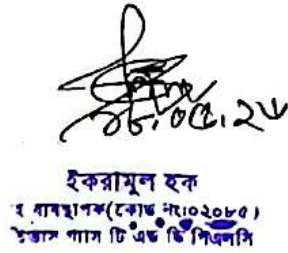 ১৮.০৫.২৬
ইকরামুল হক
ব্যবস্থাপক(কোড নং:০২০৮৫)
গ্যাস টি এন্ড ডি পিএলসি